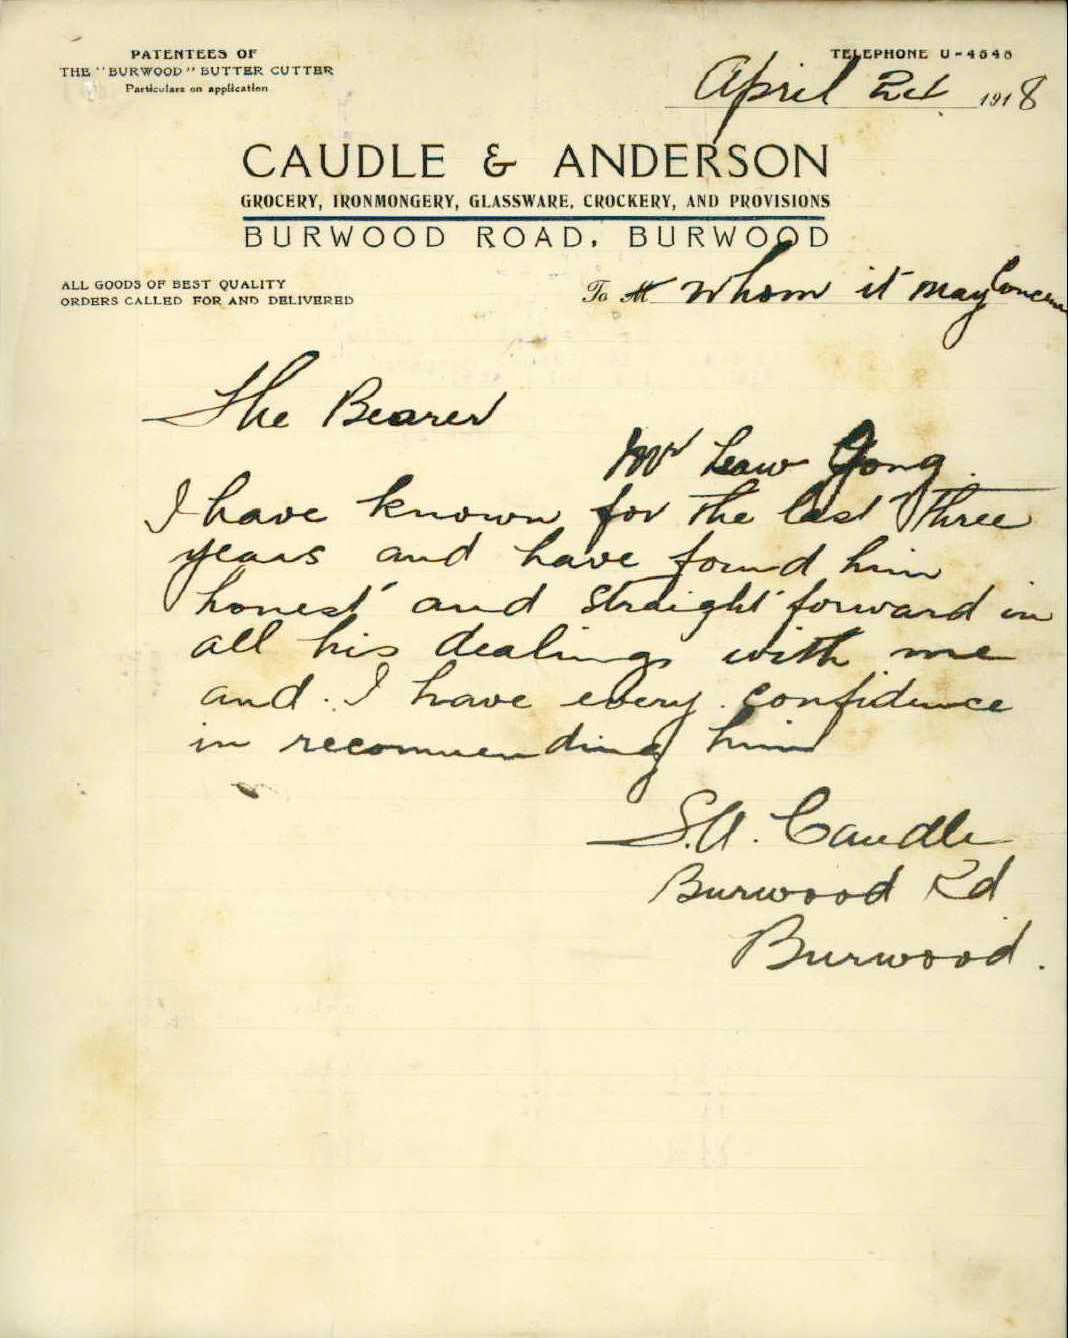 PATENTEES OF
THE "BURWOOD" BUTTER CUTTER
Particulars on application
TELEPHONE U-4646
April 1918
CAUDLE & ANDERSON
GROCERY, IRONMONGERY, GLASSWARE, CROCKERY, AND PROVISIONS
BURWOOD ROAD, BURWOOD
ALL GOODS OF BEST QUALITY
ORDERS CALLED FOR AND DELIVERED
To M whom it may Concern
The Bearer
Mr Law Gong
I have known for the last three
years and have found him
honest and straight forward in
all his dealings with me
and. I have every confidence
in recommending him
S.A. Caudle
Burwood Rd
Burwood.